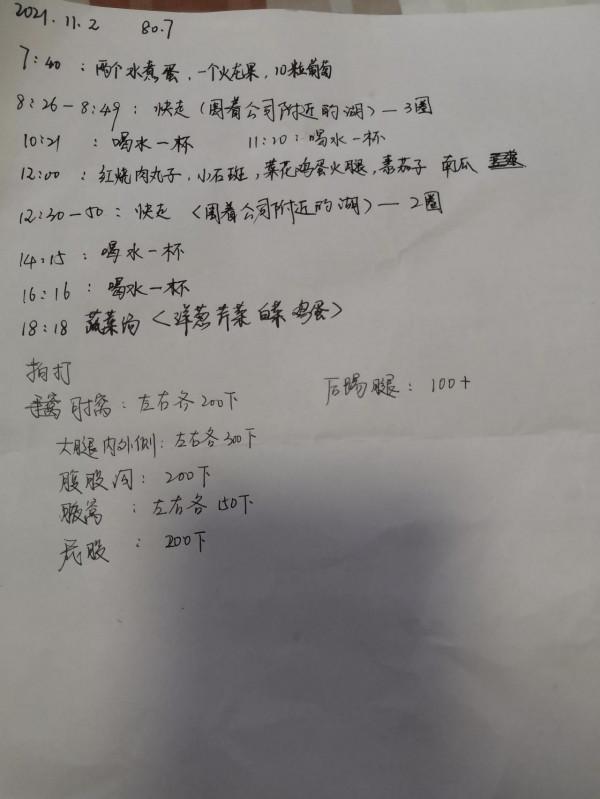 2021.11.2 80.7
7:40 : 两个水煮蛋、一个火龙果,10粒葡萄
8:26-8:49 : 快走(围着公司附近的湖)—3圈
10:21 : 喝水一杯 11:20 : 喝水一杯
12:00 : 红烧肉丸子,小石斑,菜花鸡蛋火腿,素茄子 南瓜
12:30-50 : 快走 (围着公司附近的湖)—2圈
14:15 : 喝水一杯
16:16 : 喝水一杯
18:18 蔬菜汤 <洋葱 芹菜 白菜 鸡蛋>
拍打
肘窝 : 左右各200下 后踢腿 : 100+
大腿内外侧 : 左右各300下
腹股沟 : 200下
腋窝 : 左右各150下
屁股 : 200下